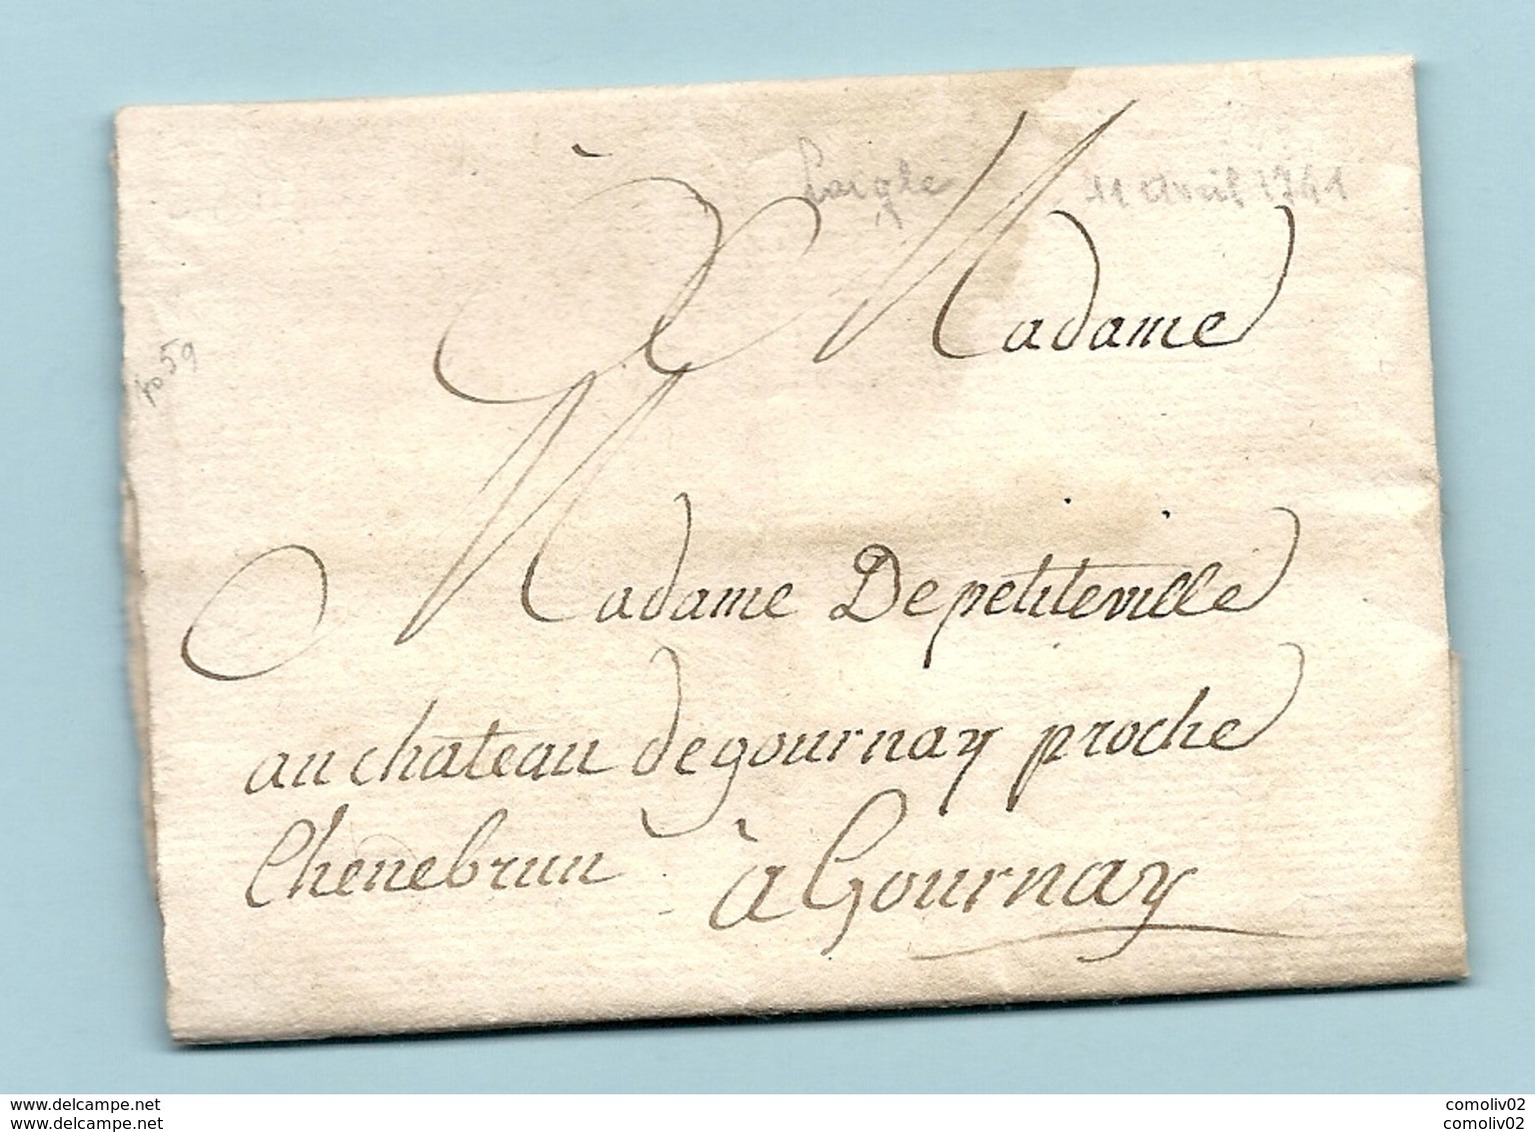 Laigle 11 avril 1741
Madame
59
Madame De petiteville
au chateau de gournay proche
Chenebrun à Gournay
www.delcampe.net comoliv02
www.delcampe.net comoliv02